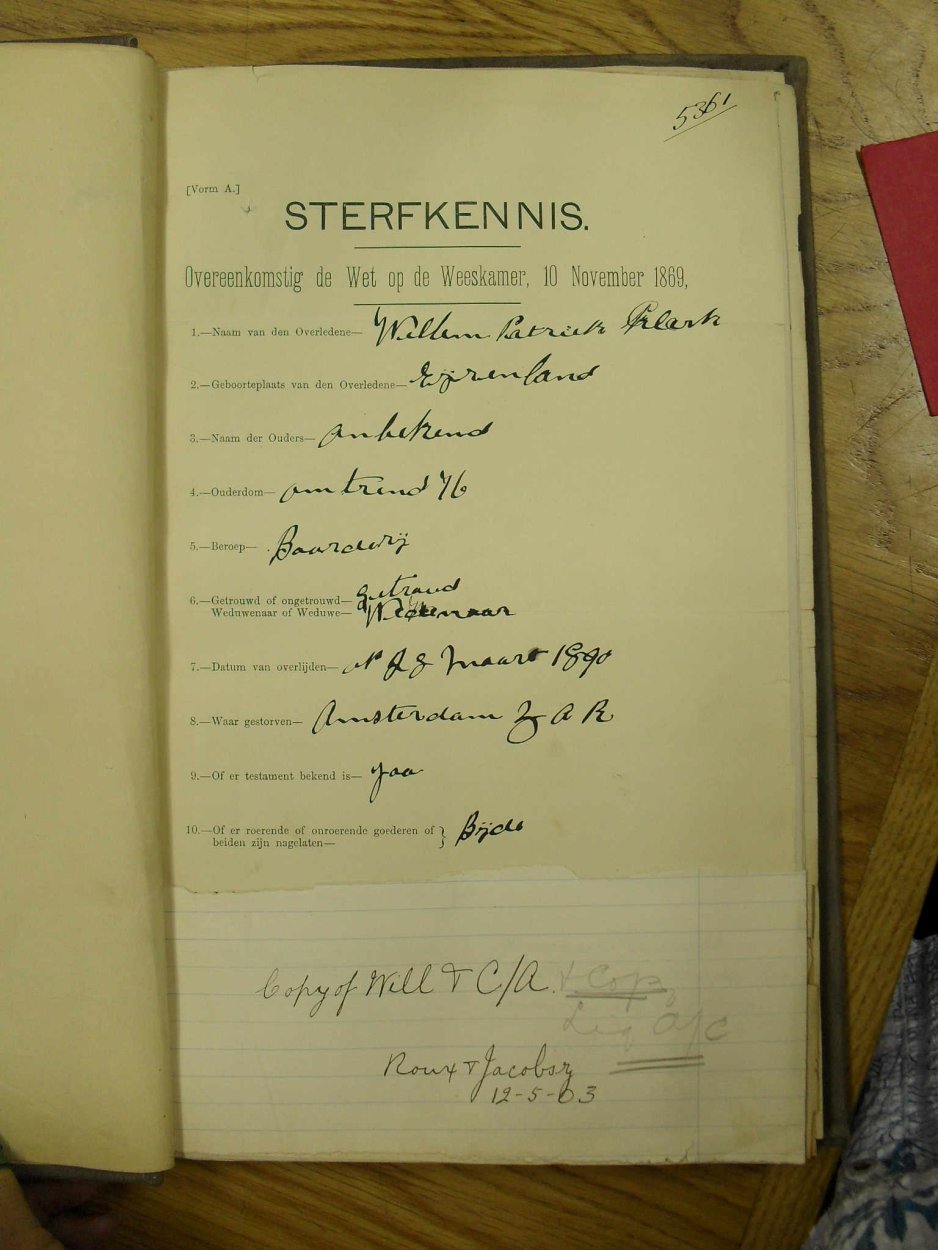 5361
[Vorm A.]
STERFKENNIS.
Overeenkomstig de Wet op de Weeskamer, 10 November 1869,
1.—Naam van den Overledene— Willem Patrick Klark
2.—Geboorteplaats van den Overledene— Eijrenland
3.—Naam der Ouders— onbekend
4.—Ouderdom— omtrend 76
5.—Beroep— Boorderij
6.—Getrouwd of ongetrouwd— getroud
Weduwenaar of Weduwe— Wedenaar
7.—Datum van overlijden— Maart 1890
8.—Waar gestorven— Amsterdam Z A R
9.—Of er testament bekend is— Jaa
10.—Of er roerende of onroerende goederen of } Bijde
beiden zijn nagelaten—
Copy of Will & C/A. & Cop
Liq a/c
Roux & Jacobsz
12-5-03